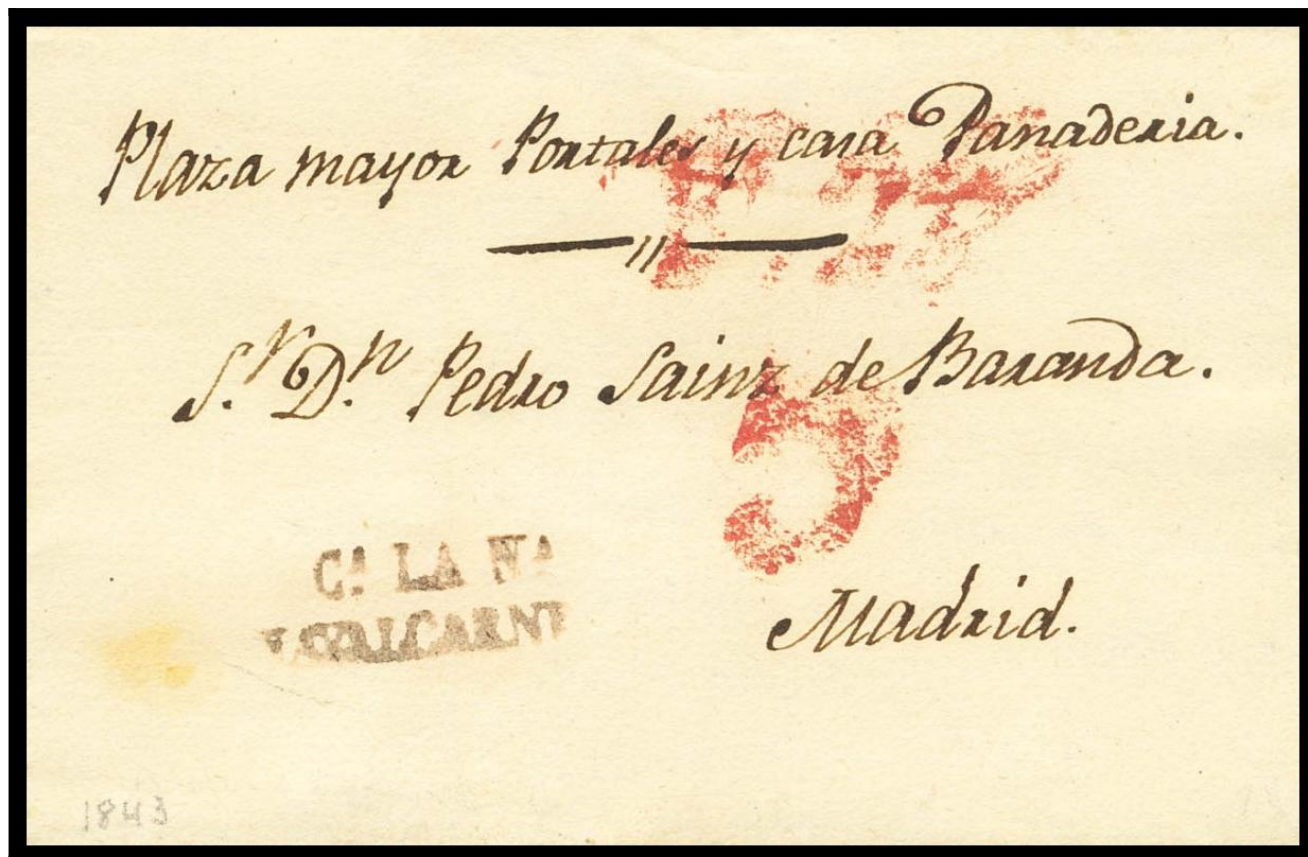 Plaza mayor Portales y casa Panaderia.
S.r D.n Pedro Sainz de Baranda.
5
Cª LA NA
Madrid.
1843